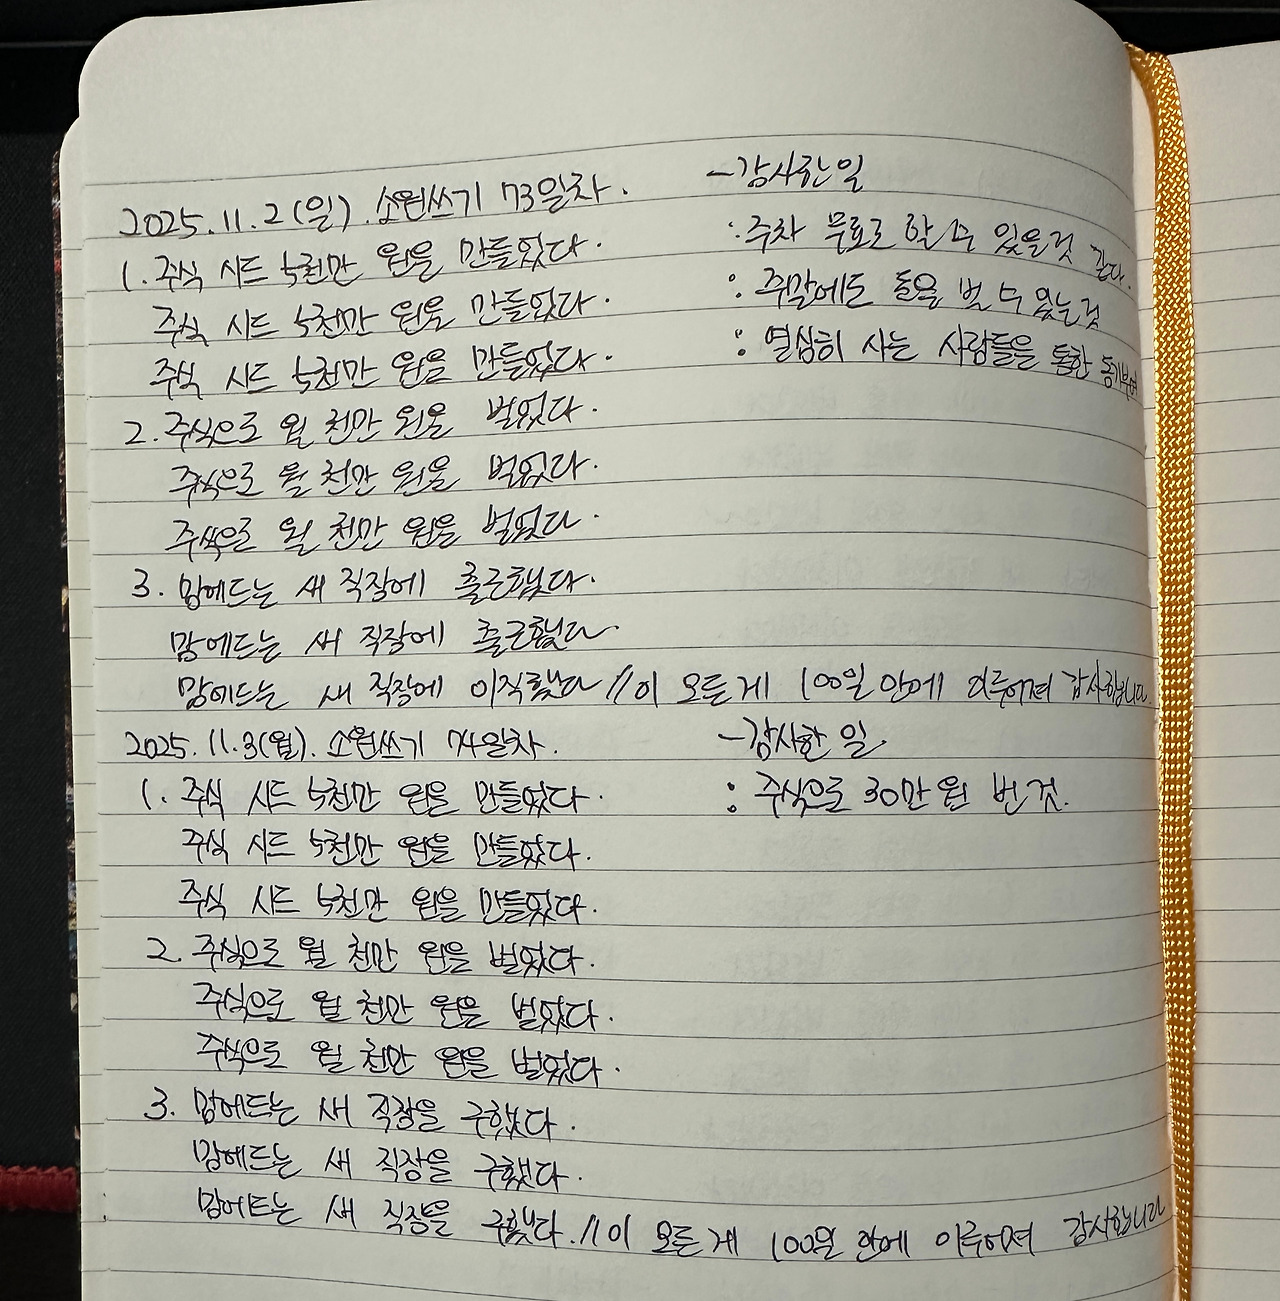 2025.11.2(일). 소원쓰기 73일차.
1. 주식 시드 5천만 원을 만들었다.
주식 시드 5천만 원을 만들었다.
주식 시드 5천만 원을 만들었다.
2. 주식으로 월 천만 원을 벌었다.
주식으로 월 천만 원을 벌었다.
주식으로 월 천만 원을 벌었다.
3. 맘에드는 새 직장에 출근했다.
맘에드는 새 직장에 출근했다.
맘에드는 새 직장에 이직했다 // 이 모든게 100일 안에 이루어져 감사합니다.
- 감사한 일
: 주차 무료로 할 수 있을것 같다.
: 주말에도 돈을 벌 수 있는것
: 열심히 사는 사람들을 통한 동기부여
2025.11.3(월). 소원쓰기 74일차.
1. 주식 시드 5천만 원을 만들었다.
주식 시드 5천만 원을 만들었다.
주식 시드 5천만 원을 만들었다.
2. 주식으로 월 천만 원을 벌었다.
주식으로 월 천만 원을 벌었다.
주식으로 월 천만 원을 벌었다.
3. 맘에드는 새 직장을 구했다.
맘에드는 새 직장을 구했다.
맘에드는 새 직장을 구했다. // 이 모든게 100일 안에 이루어져 감사합니다
- 감사한 일
: 주식으로 30만원 번 것.